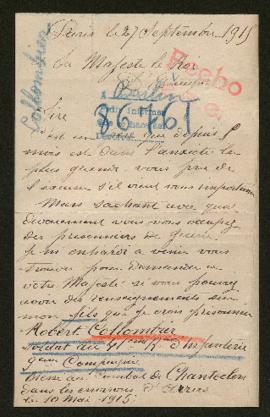 Paris le 27 Septembre 1915
Sa Majesté le Roi
Recbo
Berlin
Collombier
86761
Sire
c'est en que depuis
mois et dans l'anxiété la
plus grande vous prie de
l'excuser s'il vous importune
Mais sachant avec quel
dévouement vous vous occupez
des prisonniers de guerre
je m'enhardi a venir vous
trouver pour demander a
votre Majesté si vous pouvez
avoir des renseignements sur
mon fils que je crois prisonnier
Robert Collombier
soldat au d'Infanterie
9me Compagnie
au combat de Chanteclers
dans les environs d'Arras
le 10 Mai 1915